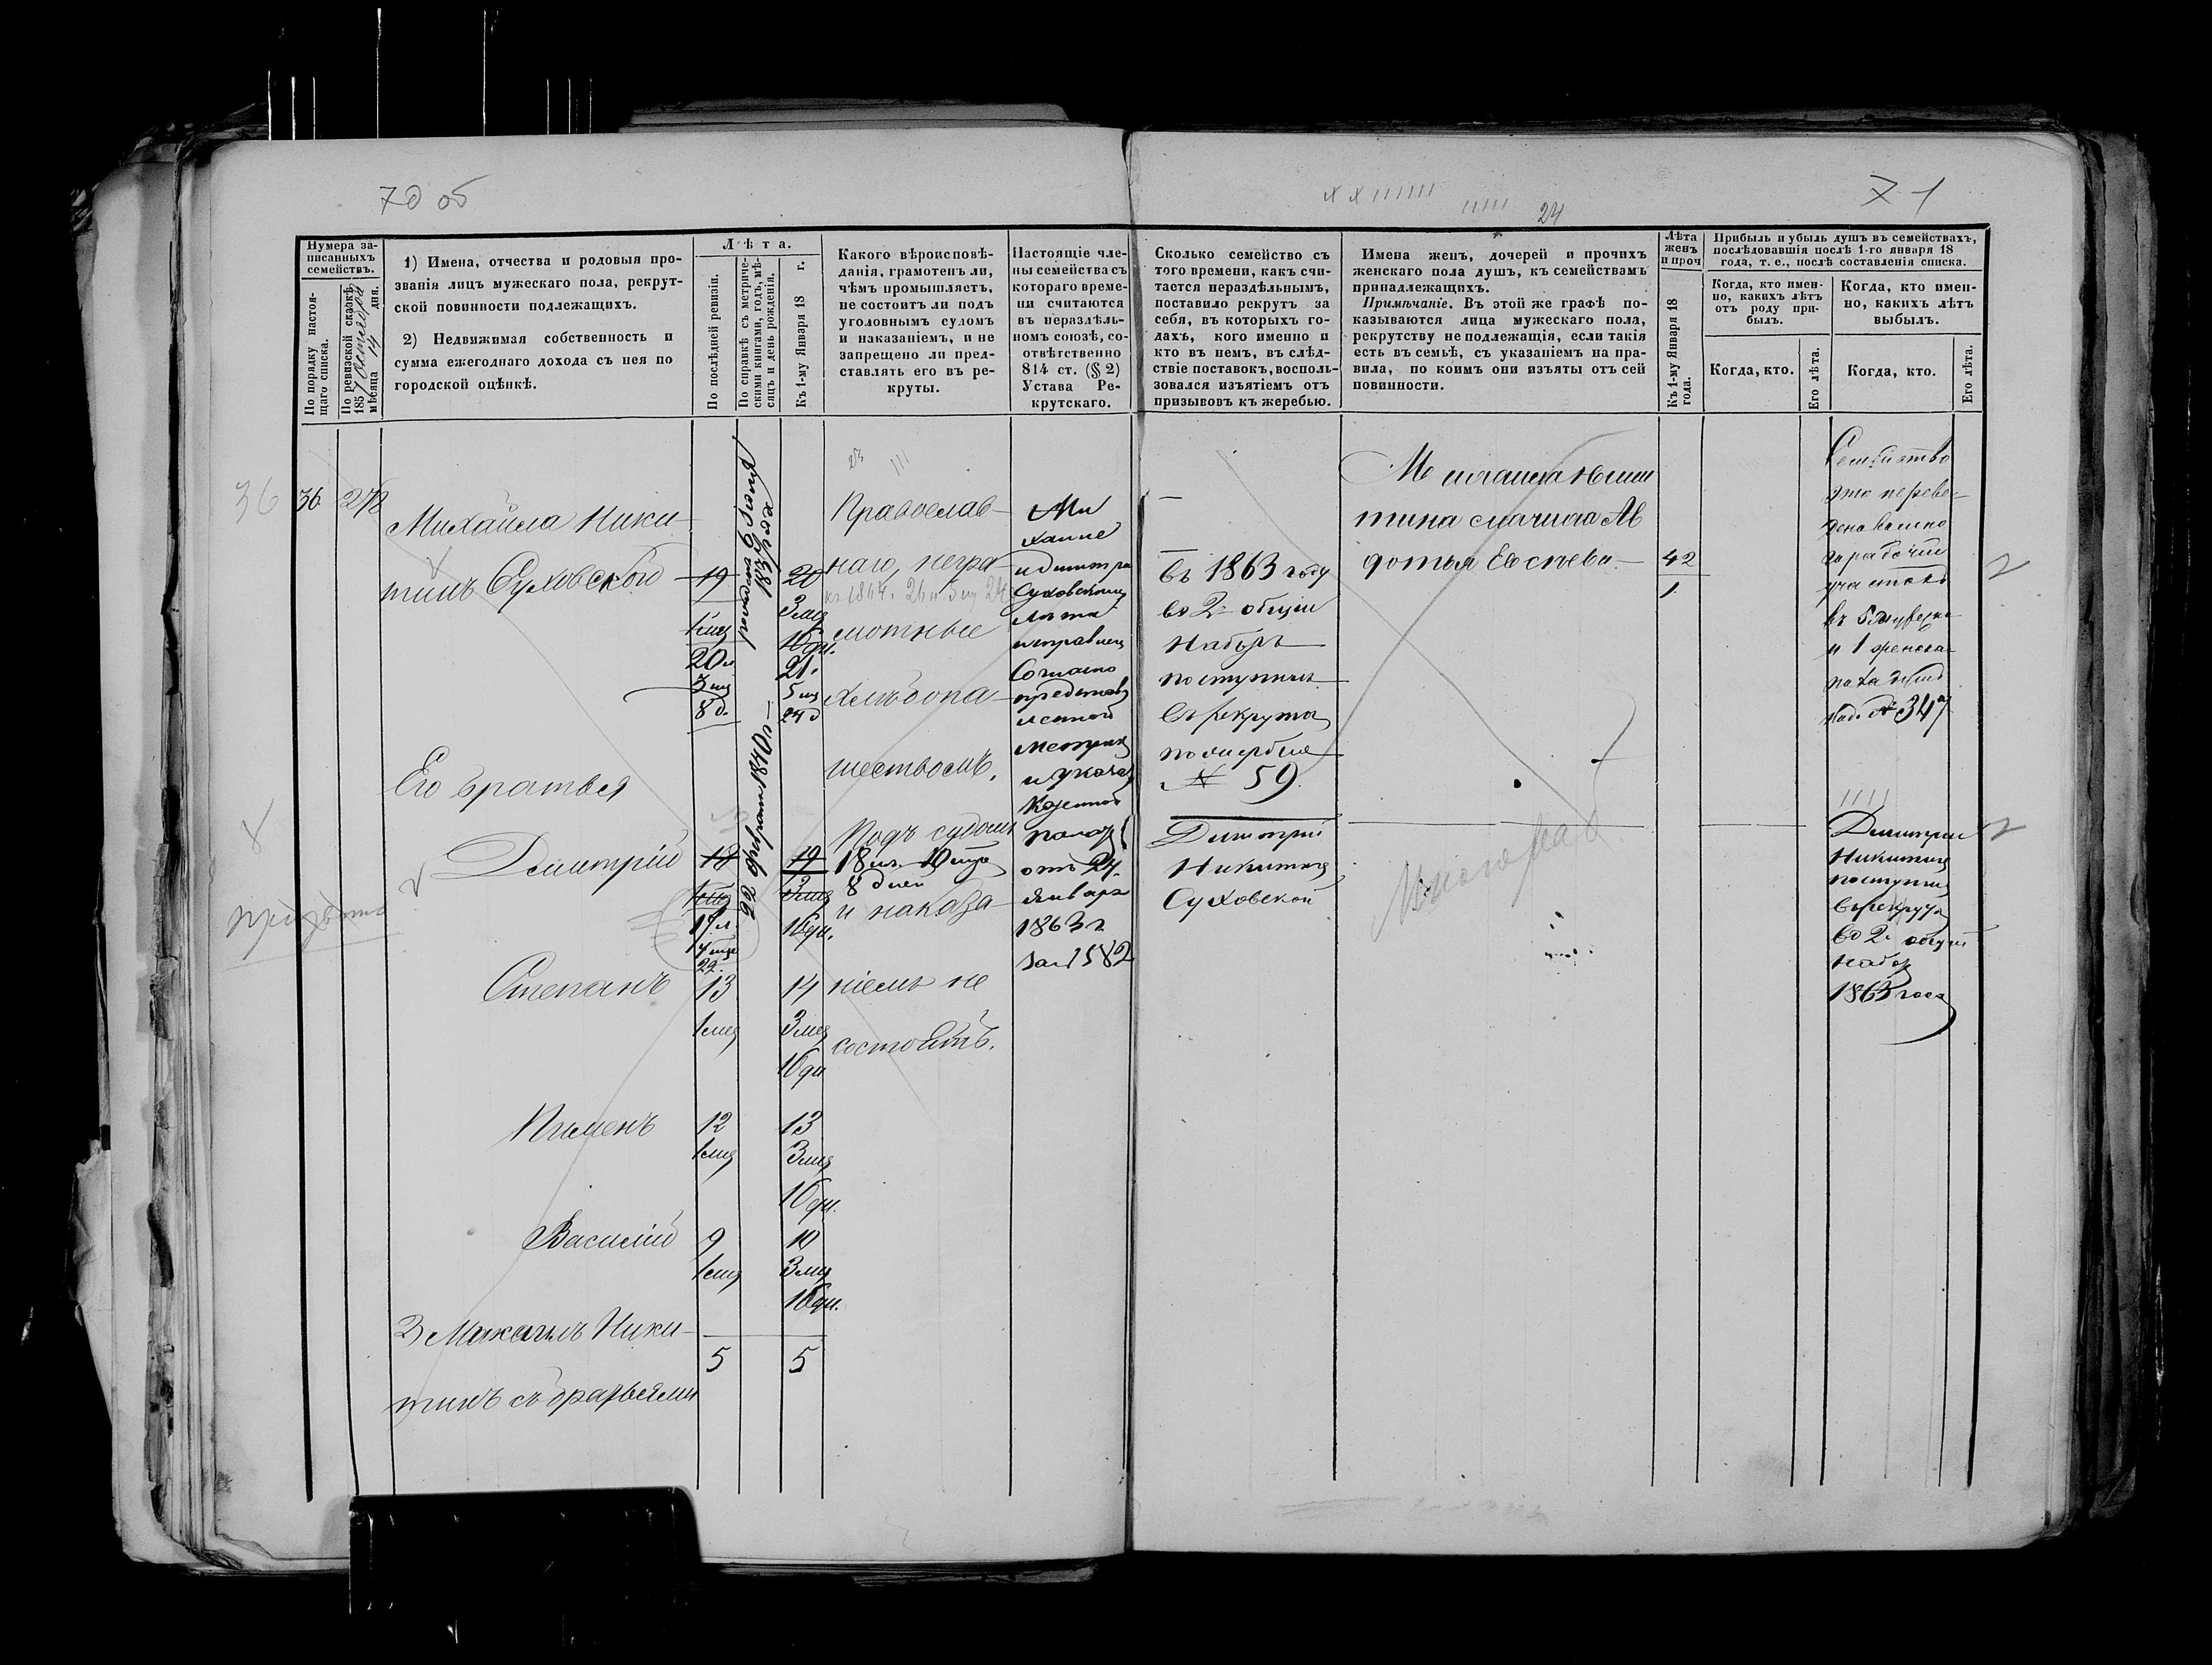 70 об
24
71
Нумера за-
писанныхъ
семействъ.
По порядку настоя-
щаго списка.
По ревизской сказкѣ
185 7 Октября
мѣсяца 14 дня.
1) Имена, отчества и родовыя про-
званія лицъ мужескаго пола, рекрут-
ской повинности подлежащихъ.
2) Недвижимая собственность и
сумма ежегоднаго дохода съ нея по
городской оцѣнкѣ.
Лѣта.
По послѣдней ревизіи.
По справкѣ съ метриче-
скими книгами, годъ, мѣ-
сяцъ и день рожденія.
Къ 1-му Января 18 г.
Какого вѣроисповѣ-
данія, грамотенъ ли,
чѣмъ промышляетъ,
не состоитъ ли подъ
уголовнымъ судомъ
и наказаніемъ, и не
запрещено ли пред-
ставлять его въ ре-
круты.
Настоящіе чле-
ны семейства съ
котораго време-
ни считаются
въ нераздѣль-
номъ союзѣ, со-
отвѣтственно
814 ст. (§ 2)
Устава Ре-
крутскаго.
Сколько семейство съ
того времени, какъ счи-
тается нераздѣльнымъ,
поставило рекрутъ за
себя, въ которыхъ го-
дахъ, кого именно и
кто въ немъ, въ слѣд-
ствіе поставокъ, восполь-
зовался изъятіемъ отъ
призывовъ къ жеребью.
Имена женъ, дочерей и прочихъ
женскаго пола душъ, къ семействамъ
принадлежащихъ.
Примѣчаніе. Въ этой же графѣ по-
казываются лица мужескаго пола,
рекрутству не подлежащія, если такія
есть въ семьѣ, съ указаніемъ на пра-
вила, по коимъ они изъяты отъ сей
повинности.
Лѣта
женъ
и проч
Къ 1-му Января 18
года.
Прибыль и убыль душъ въ семействахъ,
послѣдовавшія послѣ 1-го января 18
года, т. е., послѣ составленія списка.
Когда, кто имен-
но, какихъ лѣтъ
отъ роду при-
былъ.
Когда, кто имен-
но, какихъ лѣтъ
выбылъ.
Когда, кто.
Его лѣта.
Когда, кто.
Его лѣта.
36
36
278
Михайла Ники-
тинъ Суховской
19
1 мц
20 л
3 мц
8 д.
1838 года
20
3 мц
16 дн.
21.
5 мц
24 д
Православ-
наго, негра-
мотные
хлѣбопа-
шествомъ.
Ми
хаиле
и Димитрію
Суховскому
лѣта
исправлены
Согласно
представ
ленной
метрики
и указа
Казенной
палаты
отъ 24
Января
1863 г
за № 1582
въ 1863 году
во 2й общій
наборъ
поступилъ
въ рекруты
по жеребью
№ 59.
Димитрій
Никитинъ
Суховской
42
1
Семейство
это переве-
дено
рабочій
участокъ
№ 347
Его братья
Димитрій
18
1 мц
17 л
26 февраля 1840
19
3 мц
16 дн.
Подъ судомъ
8 дней
и наказа-
ніемъ не
состоятъ.
Димитрій
Никитинъ
поступилъ
въ рекруты
во 2й общій
наборъ
1863 года
Степанъ
13
1 мц
14
3 мц
16 дн
Пименъ
12
1 мц
13
3 мц
16 дн.
Василій
9
1 мц
10
3 мц
16 дн.
Михаилъ Ники-
тинъ съ братьями
5
5